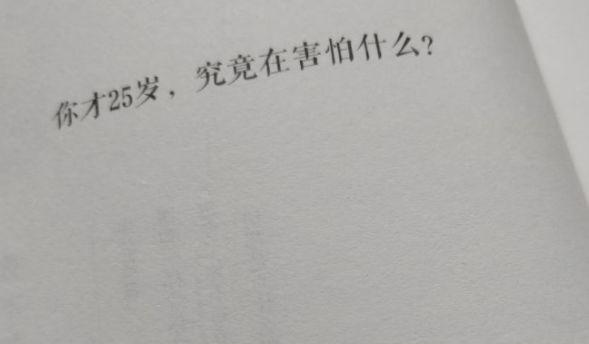 你才25岁，究竟在害怕什么？